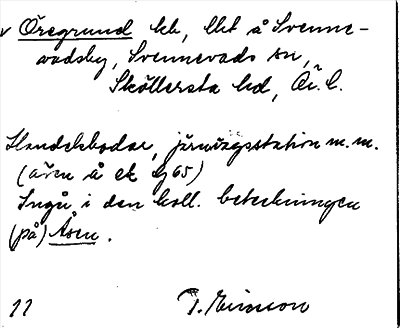 v Öregrund lkh, llht å Svenne-
vadsby, Svennevads sn,
Sköllersta hd, Ör. l.
Handelsbodar, järnvägsstation m.m.
(även å ek bl 65)
Ingå i den koll. beteckningen
(på) Åsen.
11 T. Ericsson